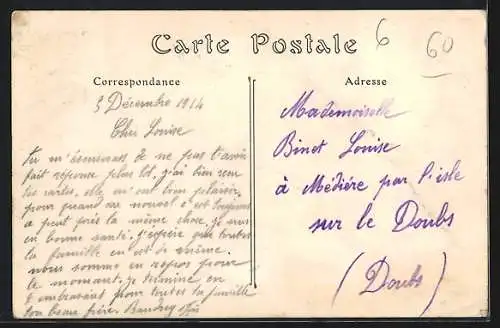 Carte Postale
6
60
Correspondance
3 Décembre 1914
Cher Louise
Tu m'éxcuserais de ne pas t'avoir
fait réponse plus tot, j'ai bien reçu
tes cartes, elle m'ont bien plaisir,
pour quand au nouvel c'est toujours
a peut près la même chose, je suis
en bonne santé. j'éspère que toutes
la famille en est de même.
nous somme en repos pour
le moment. je termine en
t'embrassant pour toutes la famille
ton beau frère. Baudrey
Adresse
Mademoiselle
Binet Louise
à Médière par l'isle
sur le Doubs
(Doubs)